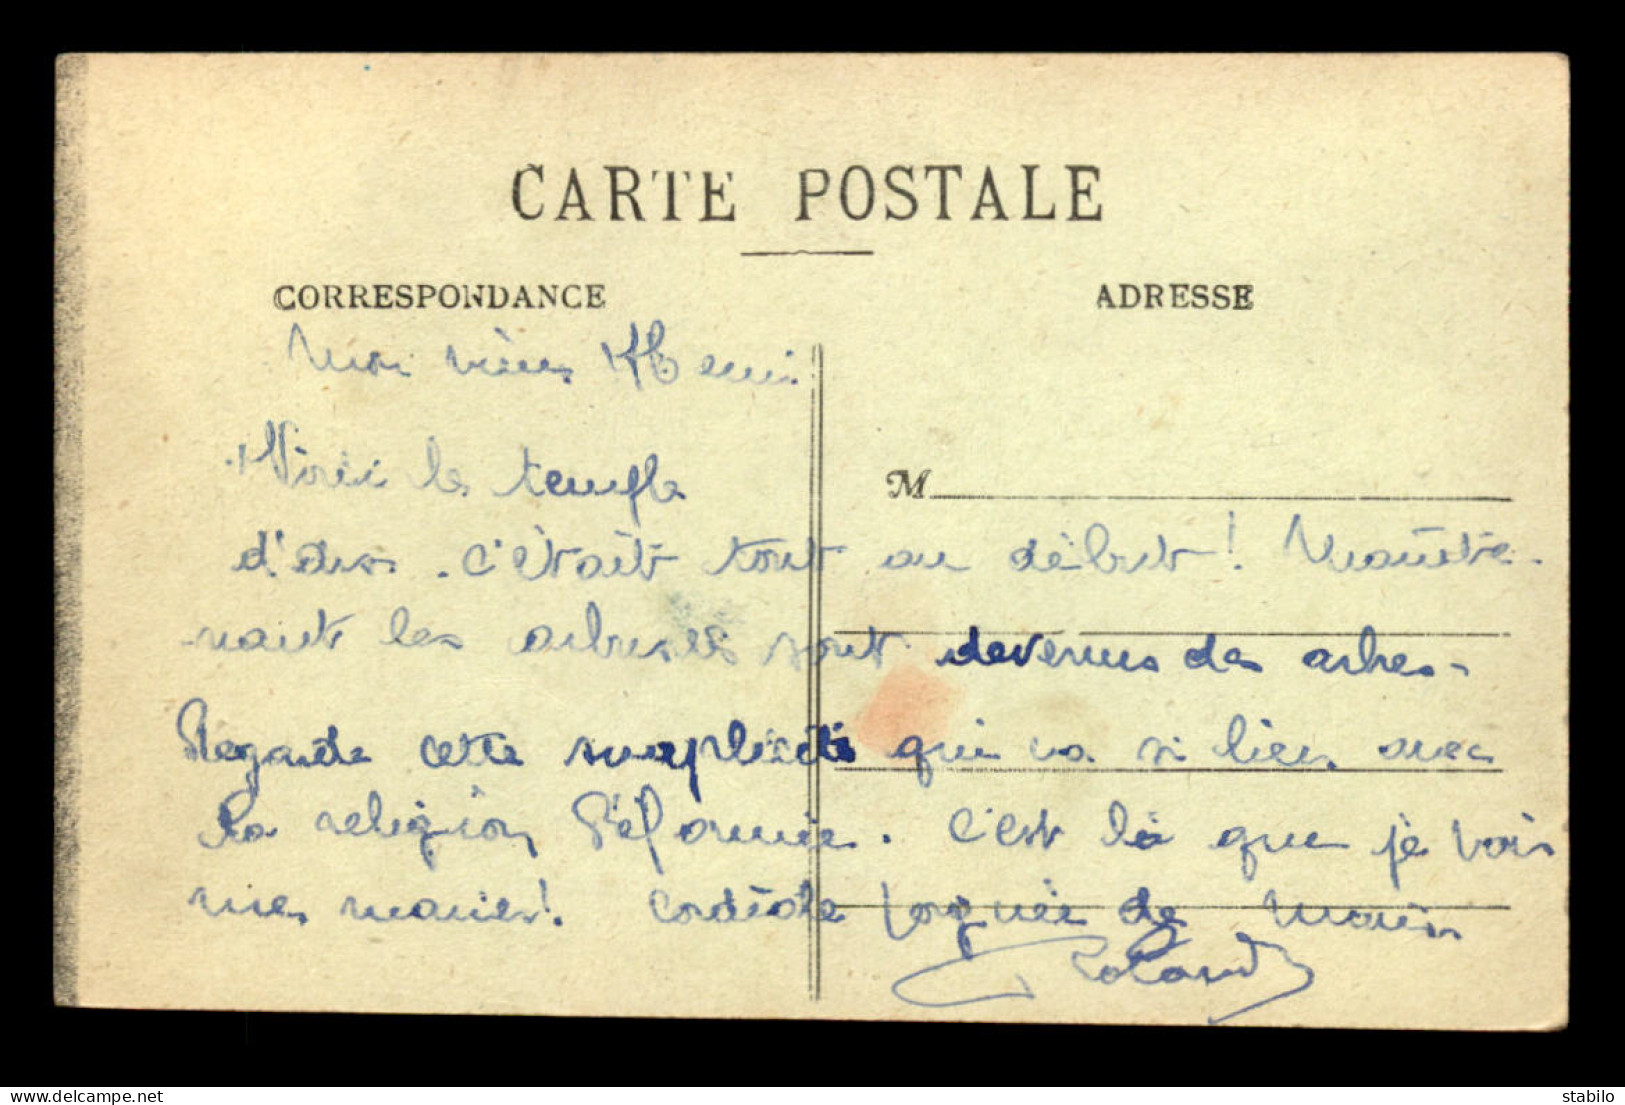 CARTE POSTALE
CORRESPONDANCE
ADRESSE
Mon vieux Henri
Voici le temple
M
d' . C'était tout au début ! Mainte-
nant les sont devenus des arbres.
Regarde cette simplicité qui va si bien avec
la religion Réformée. C'est là que je vais
me marier ! Cordiale poignée de main
Roland
www.delcampe.net
stabilo